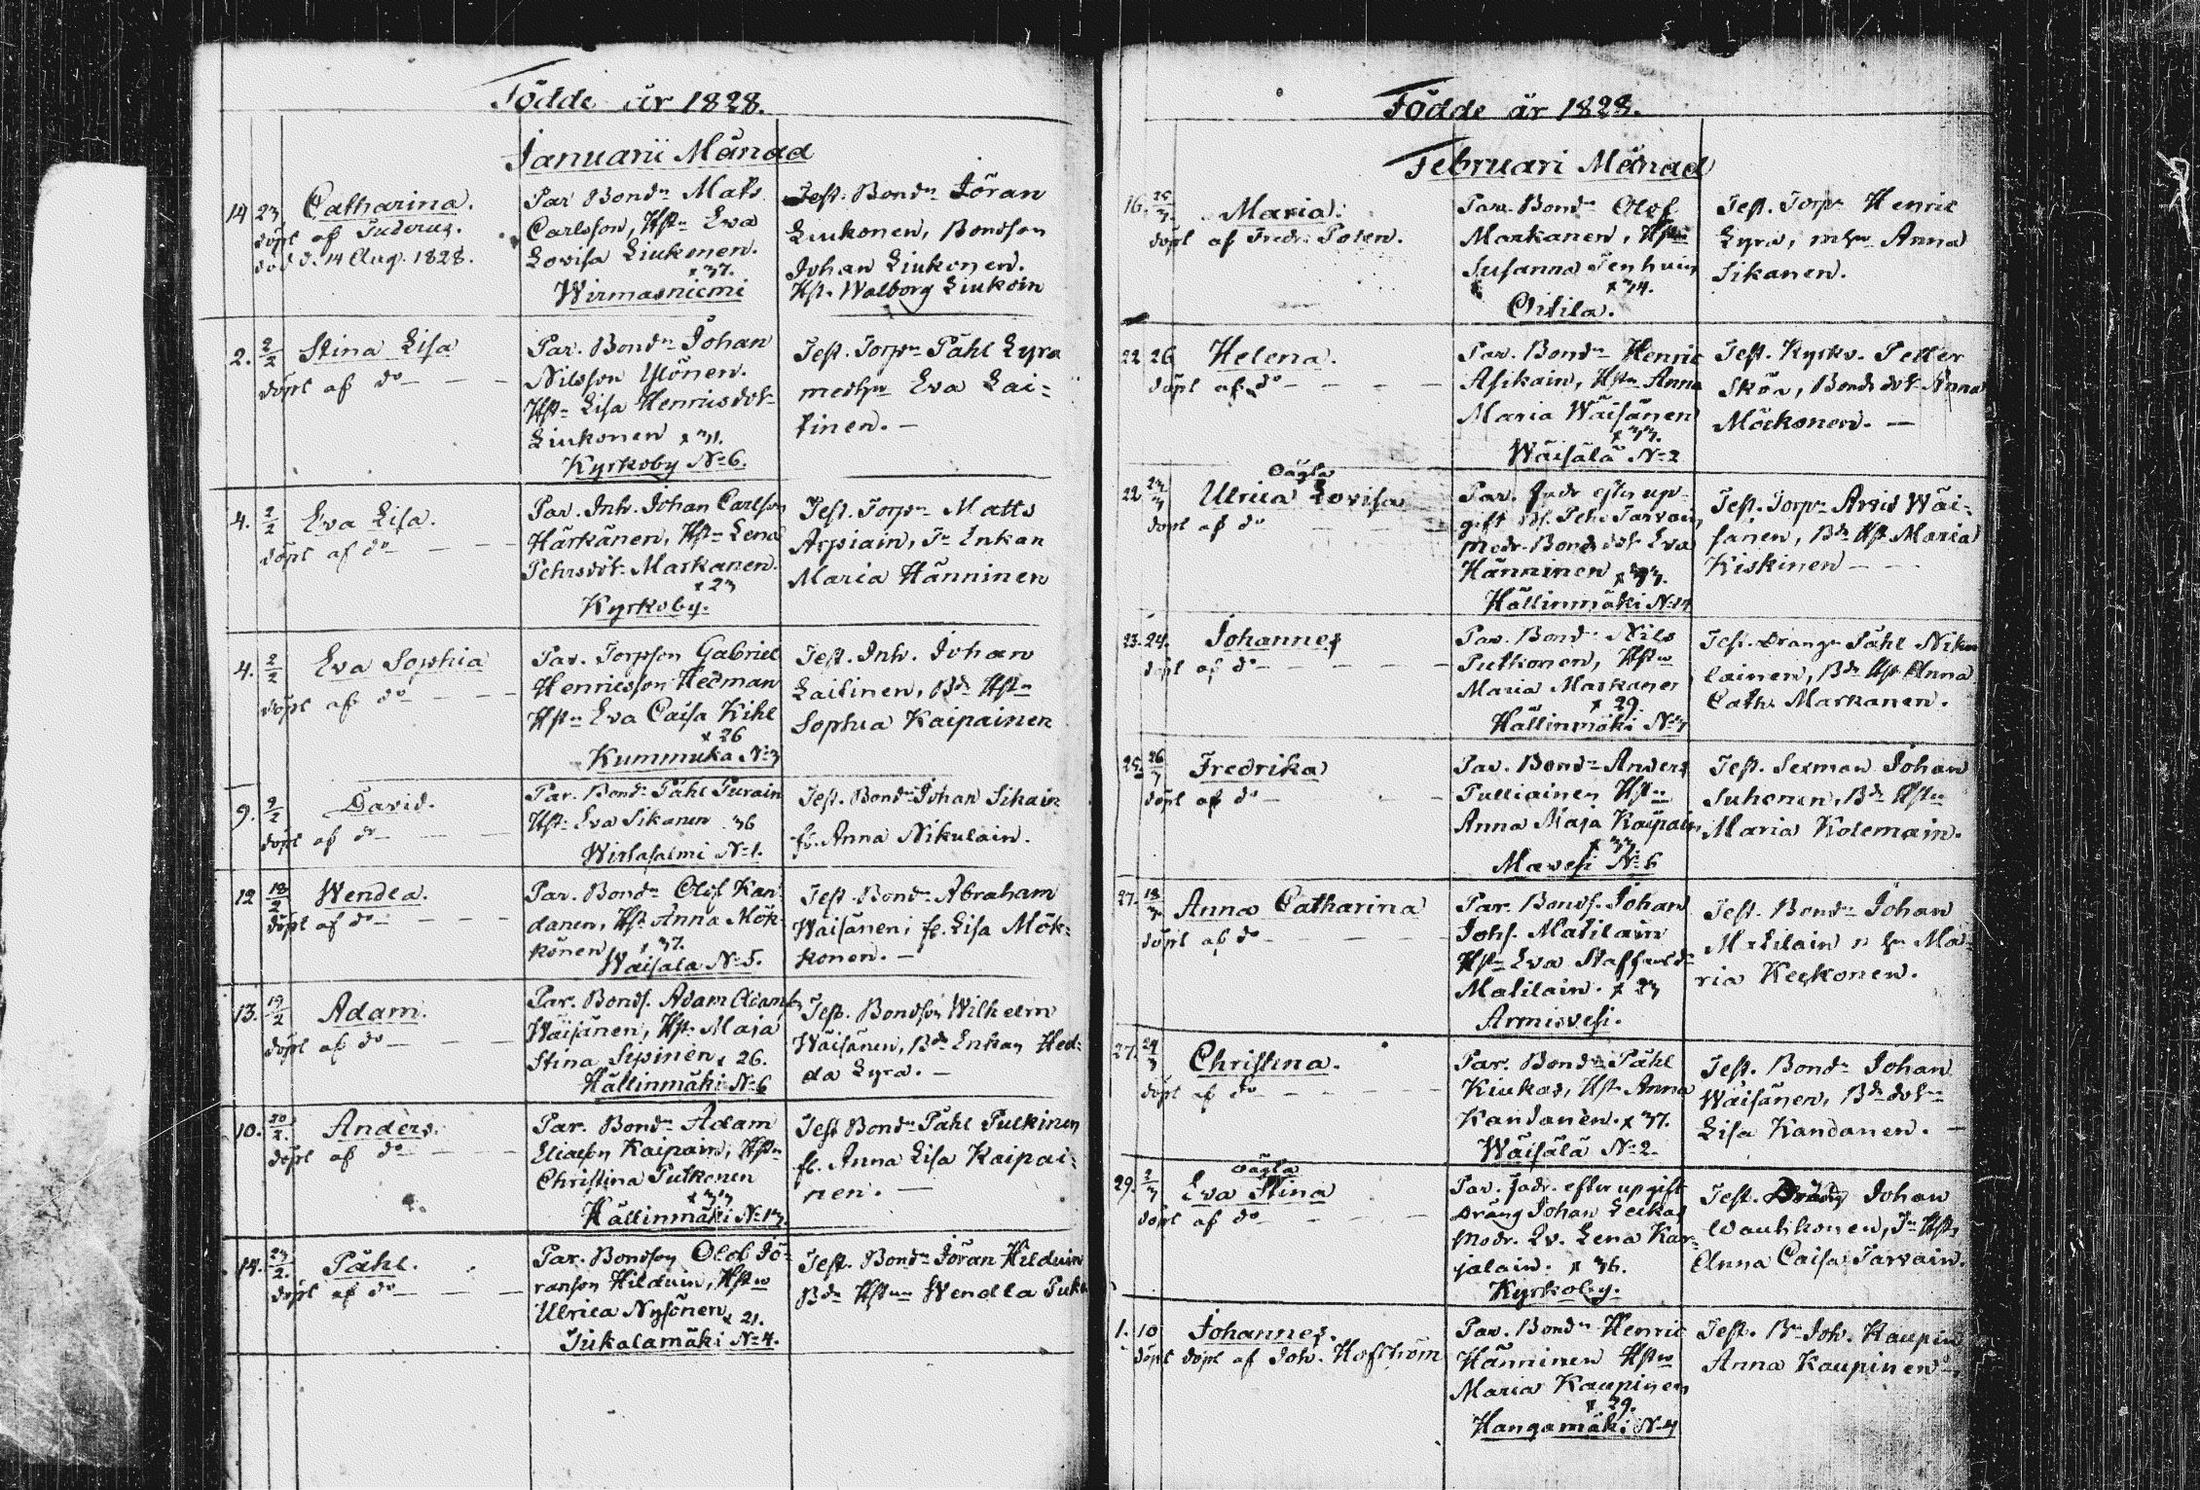 Födde år 1828.
Januarii Månad
14 23 Catharina.
döpt af Tuderus.
död d. 14 Aug. 1828.
Par Bondn Mats
Carlsson, Hstn Eva
Lovisa Liukonen.
x 37.
Wirmasniemi
Test. Bondn Jöran
Liukonen, Bondson
Johan Liukonen.
Hst. Walborg Liukoin
2. 2/2 Stina Lisa
döpt af do
Par. Bondn Johan
Nilsson Ylönen.
Hstn Lisa Henricsdotr
Liukonen x 31.
Kyrkoby No 6.
Test. Torpn Påhl Lyra
medhn Eva Lai=
tinen.
4. 2/2 Eva Lisa.
döpt af do
Par. Inh. Johan Carlson
Härkänen, Hstn Lena
Pehrsdotr Markanen.
x 23
Kyrkoby.
Test. Torpn Matts
Arpiain, Tn Enkan
Maria Hänninen
4. 2/2 Eva Sophia
döpt af do
Par. Torpson Gabriel
Henricsson Hedman
Hstn Eva Caisa Kihl
x 26
Kummuka No 3
Test. Inh. Johan
Laitinen, Bdn Hstn
Sophia Kaipainen
9. 9/2 David.
döpt af do
Par. Bondn Påhl Purain
Hstn Eva Sikanen 36
Wirtasalmi No 1.
Test. Bondn Johan Sikain
fl. Anna Nikulain.
12 18/2 Wendla.
döpt af do
Par. Bondn Olof Kan=
danen, Hst. Anna Mök=
könen x 37.
Wäisälä No 5.
Test Bondn Abraham
Wäisänen, fl. Lisa Mök=
konen.
13. 19/2 Adam.
döpt af do
Par. Bonds. Adam Adams
Wäisänen, Hst. Maja
Stina Sipinen x 26.
Hällinmäki No 6
Test. Bondson Wilhelm
Wäisänen, Bdn Enkan Hed=
da Lyra.
10. 20/2. Anders.
döpt af do
Par. Bondn Adam
Eliasson Kaipain, Hstn
Christina Putkonen
x 33
Hällinmäki No 13.
Test Bondn Påhl Pulkinen
fl. Anna Lisa Kaipai=
nen.
14. 23/2. Påhl.
döpt af do
Par. Bondson Olof Jö=
ranson Hilduin, Hstn
Ulrica Nysönen x 21.
Tukalamäki No 4.
Test. Bondn Jöran Hilduin
Bdn Hstun Wendla
Födde år 1828.
Februari Månad
16. 25/3. Maria.
döpt af Fredr. Polen.
Par. Bondn Olof
Markanen, Hstn
Susanna Tenhuin
x 34.
Oritila.
Test. Torpn Henric
Lyra, mhn Anna
Sikanen.
22 26 Helena.
döpt af do
Par. Bondn Henric
Asikain, Hstn Anna
Maria Wäisänen
x 33.
Wäisälä No 2
Test. Kyrkv. Petter
Skön, Bondsdotr Anna
Mökonen.
22 Oägta
Ulrica Lovisa
döpt af do
Par. fadr efter up=
gift
modr. Bondsdotr Eva
Hänninen
Hällinmäki No 14
Test. Torpn Arvid Wäi=
sänen, Bdn Hst Maria
Kiskinen
23. 24. Johannes
döpt af do
Par. Bondn Nils
Putkonen, Hstn
Maria Markanen
x 29.
Hällinmäki No
Test. Drängn Påhl Niku=
lainen, Bdn Hst Anna
Cath. Markanen.
25 26/3 Fredrika
döpt af do
Par. Bondn Anders
Pulliainen Hstn
Anna Maja Kaipain
x 33
Mavesi No 6
Test. Sexman Johan
Suhonen, Bdn Hstn
Maria Kolemain.
27. 18/3 Anna Catharina
döpt af do
Par. Bonds. Johan
Johs. Matilain
Hstn Eva Staffansdr
Matilain. x 23
Armisvesi.
Test. Bondn Johan
Matilain m hn Ma=
ria Keskonen.
27. 24/3 Christina.
döpt af do
Par. Bondn Påhl
Kiukas, Hstn Anna
Kandanen. x 37.
Wäisälä No 2.
Test. Bondn Johan
Wäisänen, Bdn dotr
Lisa Kandanen.
29. 2/3 oägta
Eva Stina
döpt af do
Par. fadr. efter upgift
Dräng Johan Leikas
Modr. Qv. Lena Kar=
jalain. x 36.
Kyrkoby.
Test. Dräng Johan
Wauhkonen, Tn Hstn
Anna Caisa Tarvain.
1. 10 Johannes.
döpt döpt af Joh. Hofström
Par. Bondn Henric
Hänninen Hstn
Maria Kaupinen
x 29.
Hangamäki No 4
Test. Bn Joh. Kaupin
Anna Kaupinen